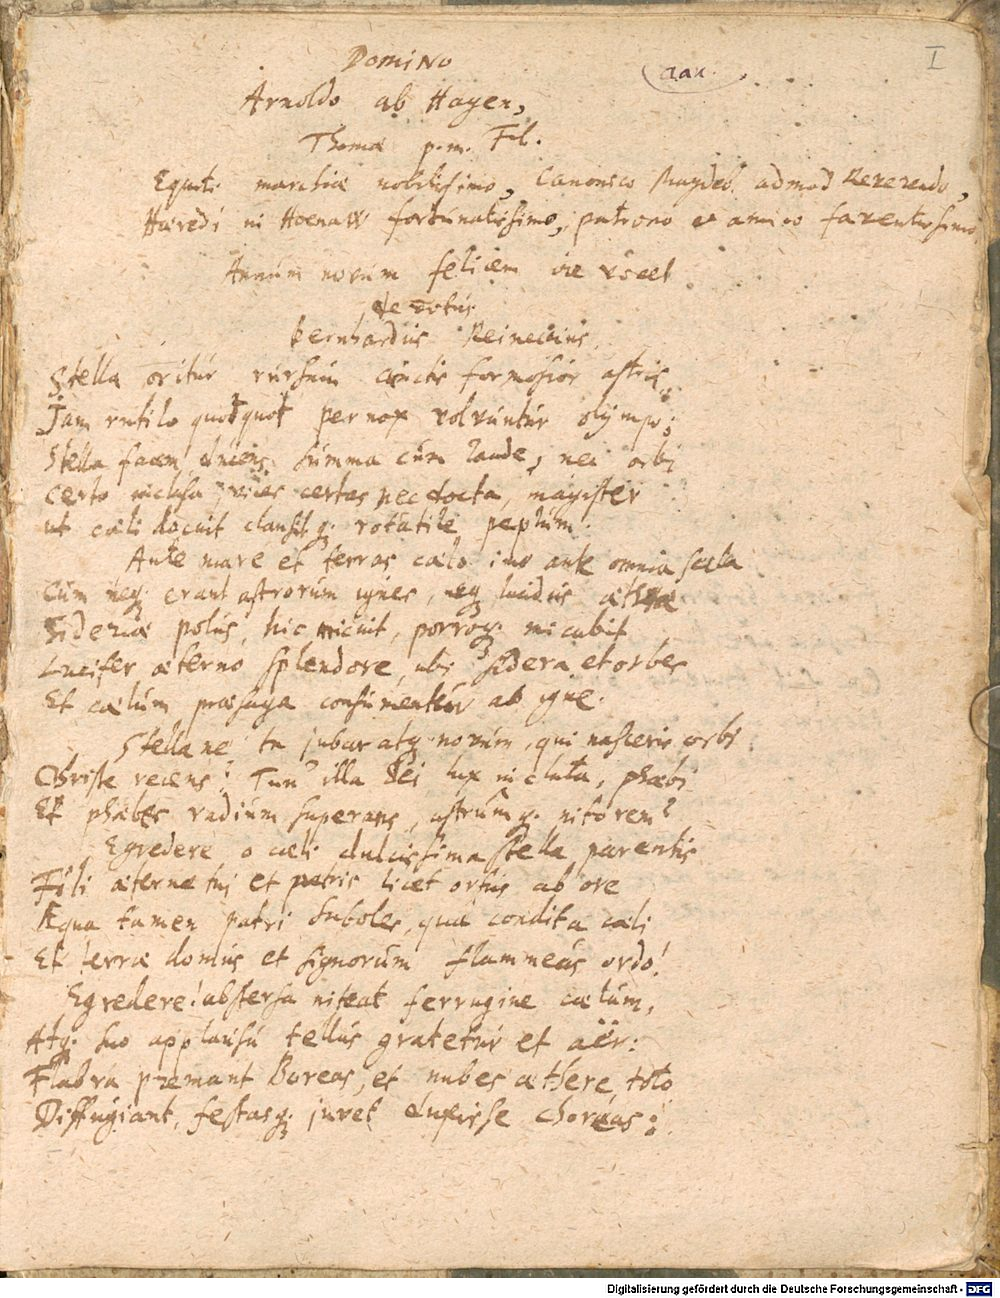 Domino
I
Arnoldo ab Hagen,
Thomæ p. m. Fil.
Equiti marchiæ nobilissimo, Canonico Magdeb. admod Reverendo,
Hæredi in Hoenaw fortunatissimo, patrono et amico faventissimo
Annum novum felicem
devotus
Bernhardus Reineccius.
Stella oritur rursum cunctis formosior astris,
Jam rutilo quotquot per nox volvuntur olympo;
Stella facem ducens summa cum laude, nec orbi
Certo inclusa, vices certas nec docta, magister
ut cæli docuit clausitq; rotatile peplum.
Ante mare et terras cælo imo ante omnia sæcla
Cum neq; erant astrorum ignes, neq; lucidus æthræ
Sidereæ polus, hic micuit, porroq; micabit
Lucifer æterno splendore, ubi sidera et orbes
Et cælum præsaga consumentur ab igne.
Stellane tu jubar atq; novum, qui nasceris orbi,
Christe recens? Tun' illa Dei lux incluta, phæbi
Et phæbes radium superans, astrumq; nitorem?
Egredere o cæli dulcissima stella parentis
Fili æterne tui et patris licet ortus ab ore
Æqua tamen patri suboles, qua condita cæli
Et terræ domus et signorum flammeus ordo!
Egredere! abstersa niteat ferrugine cælum,
Atq; suo applausu tellus gratetur et aër:
Flabra premant Boreas, et nubes æthere toto
Diffugiant, festasq; juvet duxisse choreas!
Digitalisierung gefördert durch die Deutsche Forschungsgemeinschaft - DFG